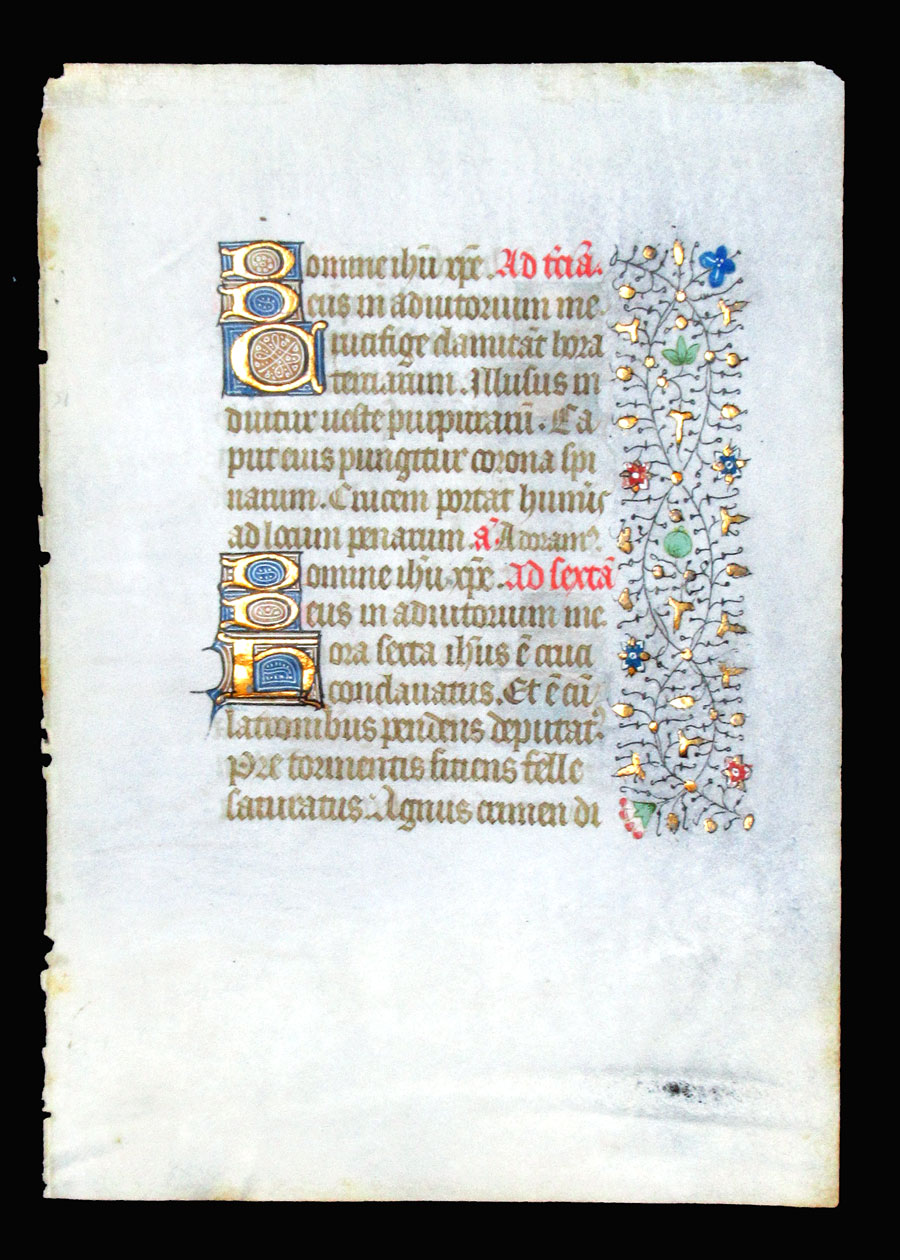 Domine ihū xpē. Ad t̄ciā.
Deus in adiutorium me
Crucifige clamitāt hora
terciarum. Illusus in
duitur ueste purpurarū. Ca
put eius pungitur corona spi
narum. Crucem portat humīs
ad locum penarum. ā. Adoram⁹.
Domine ihū xpē. Ad sextā
Deus in adiutorium me.
Hora sexta ihūs ē cruci
conclauatus. Et ē cū
latronibus pendens deputat⁹.
Pre tormentis sitiens felle
saturatus. Agnus crimen di